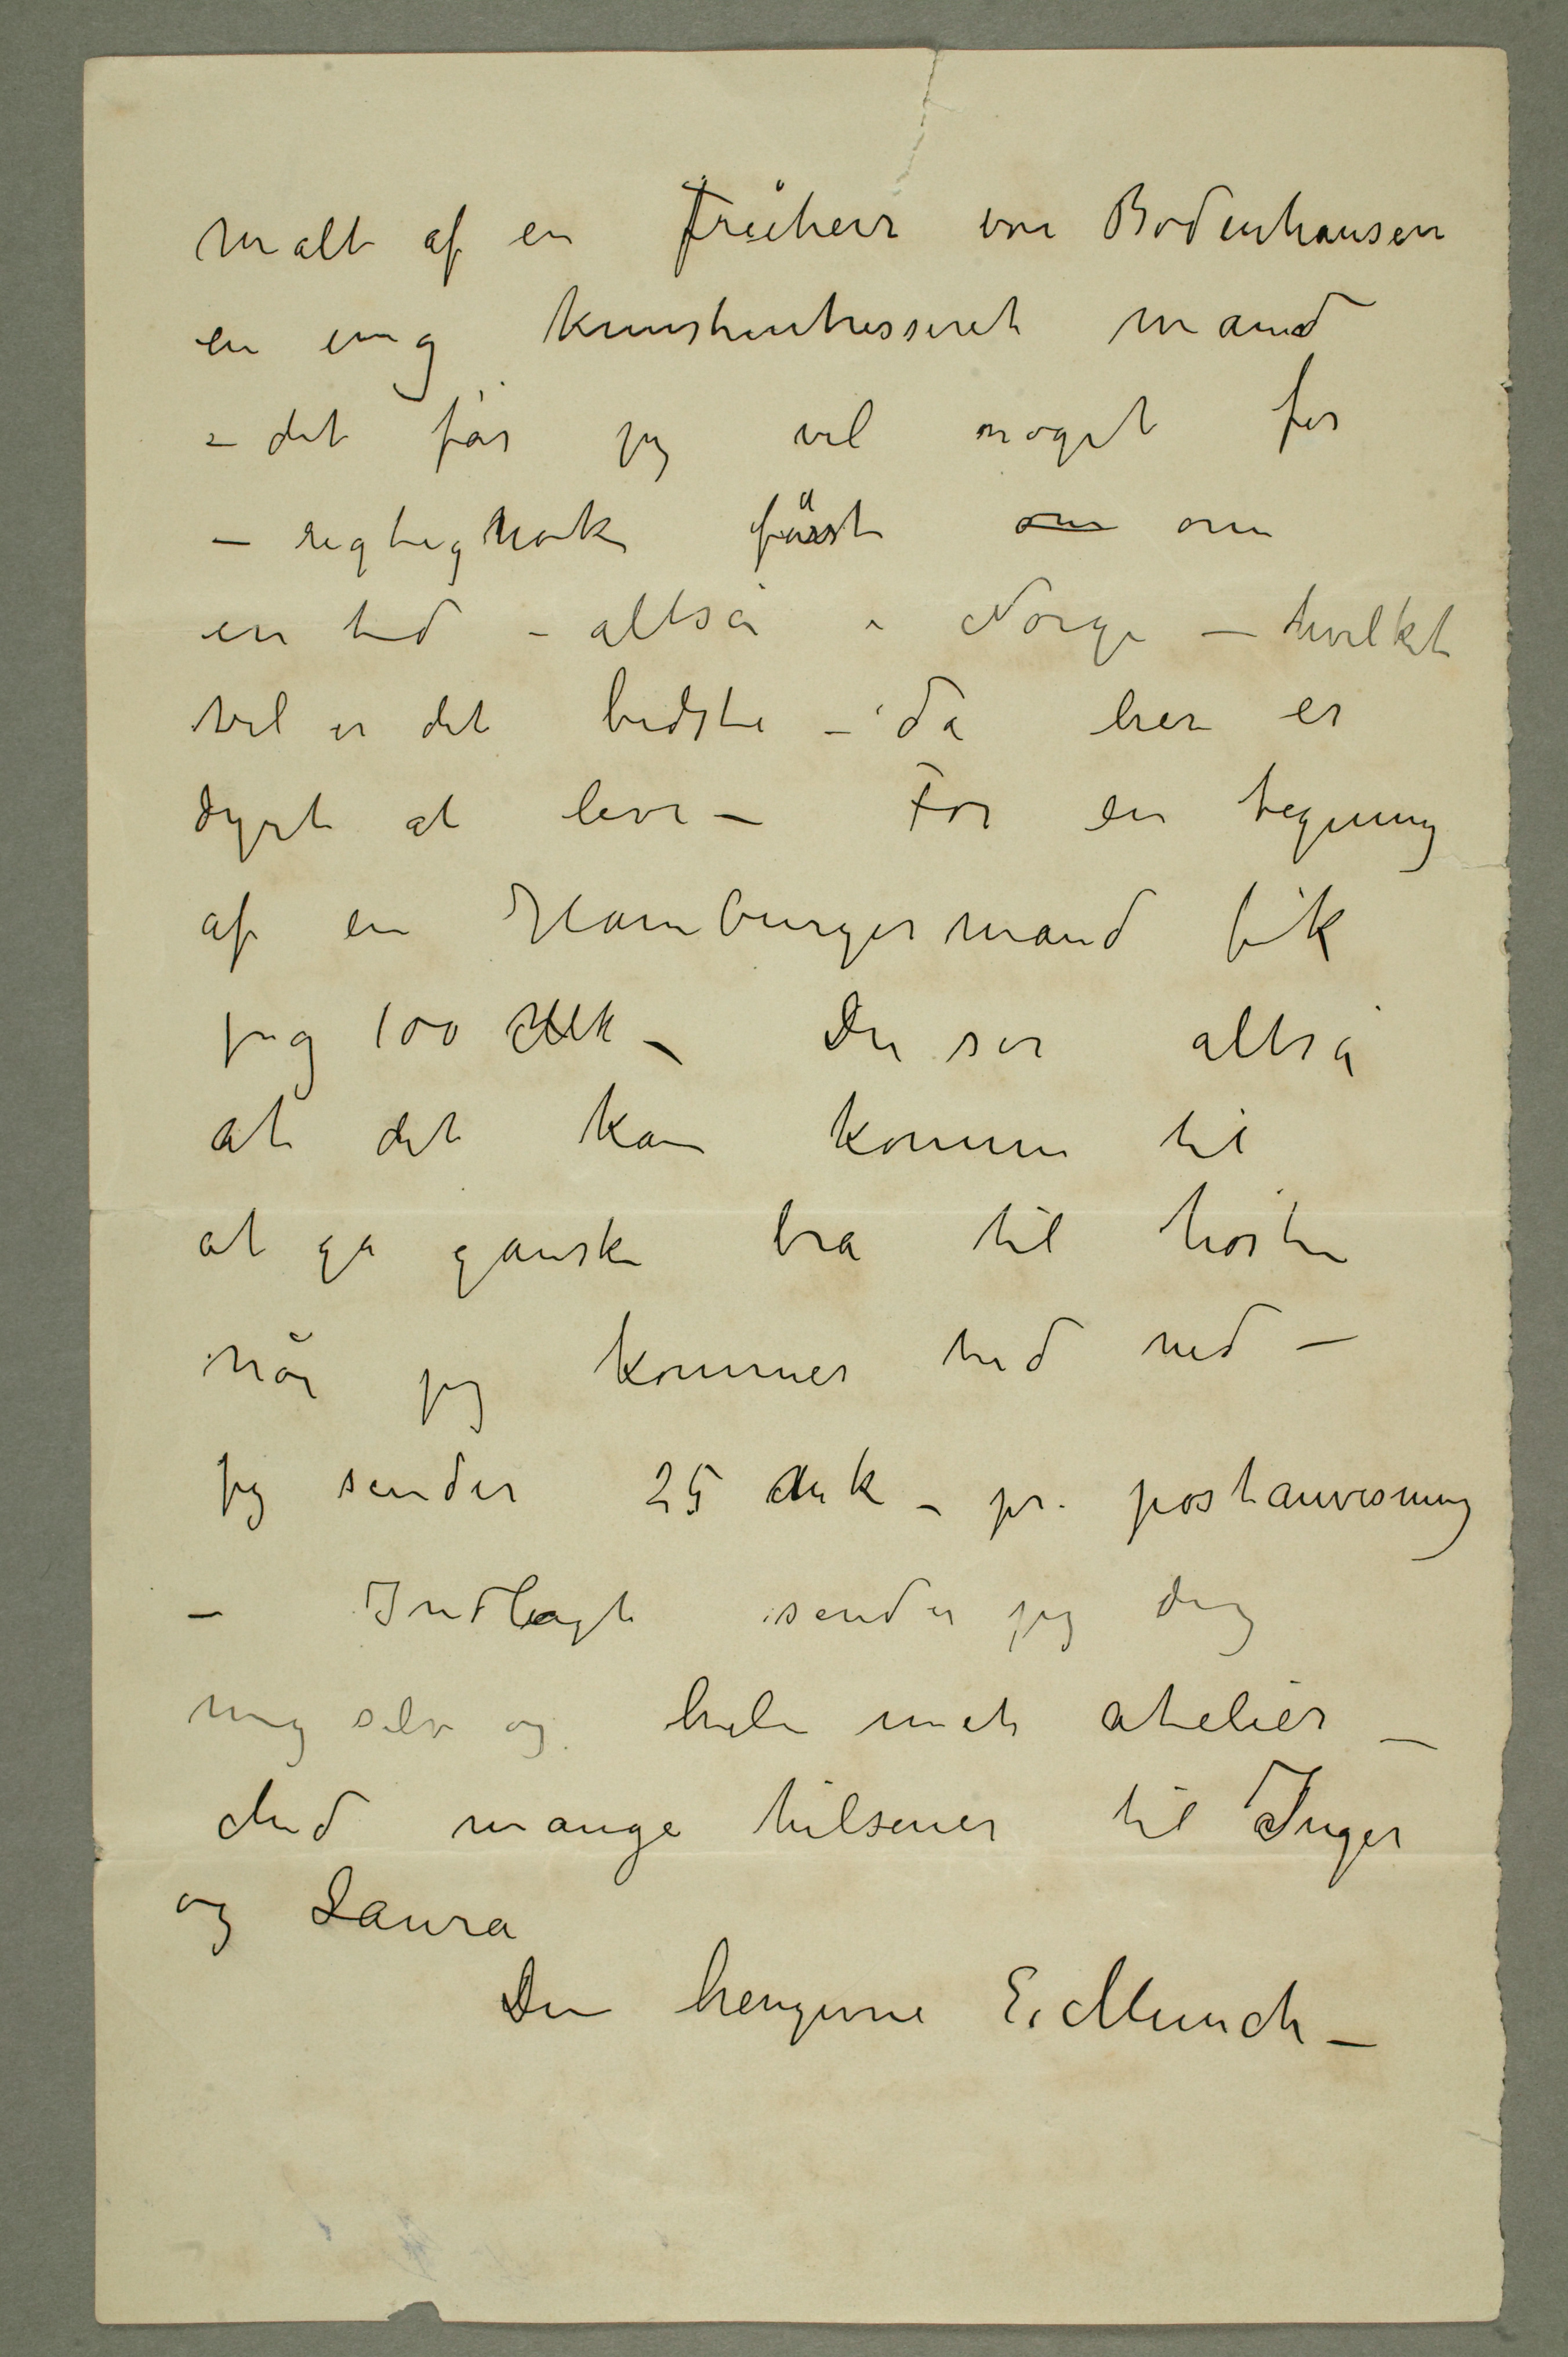 malt af en Freiherr von Bodenhausen
en ung kunstintresseret mand
– det får jeg vel noget for
– rigtignok först om om
en tid – altså i Norge – hvilket
vel er det bedste – da her er
dyrt at leve – For en tegning
af en Hamburgermand fik
jeg 100 Mk – Du ser altså
at det kan komme til
at gå ganske bra til høsten
når jeg kommer hid ned –
Jeg sender 25 Mk – pr. postanvisning
– Indlagt sender jeg dig
mig selv og hele mit atelier –
Med mange hilsener til Inger
og Laura
Din hengivne E. Munch –